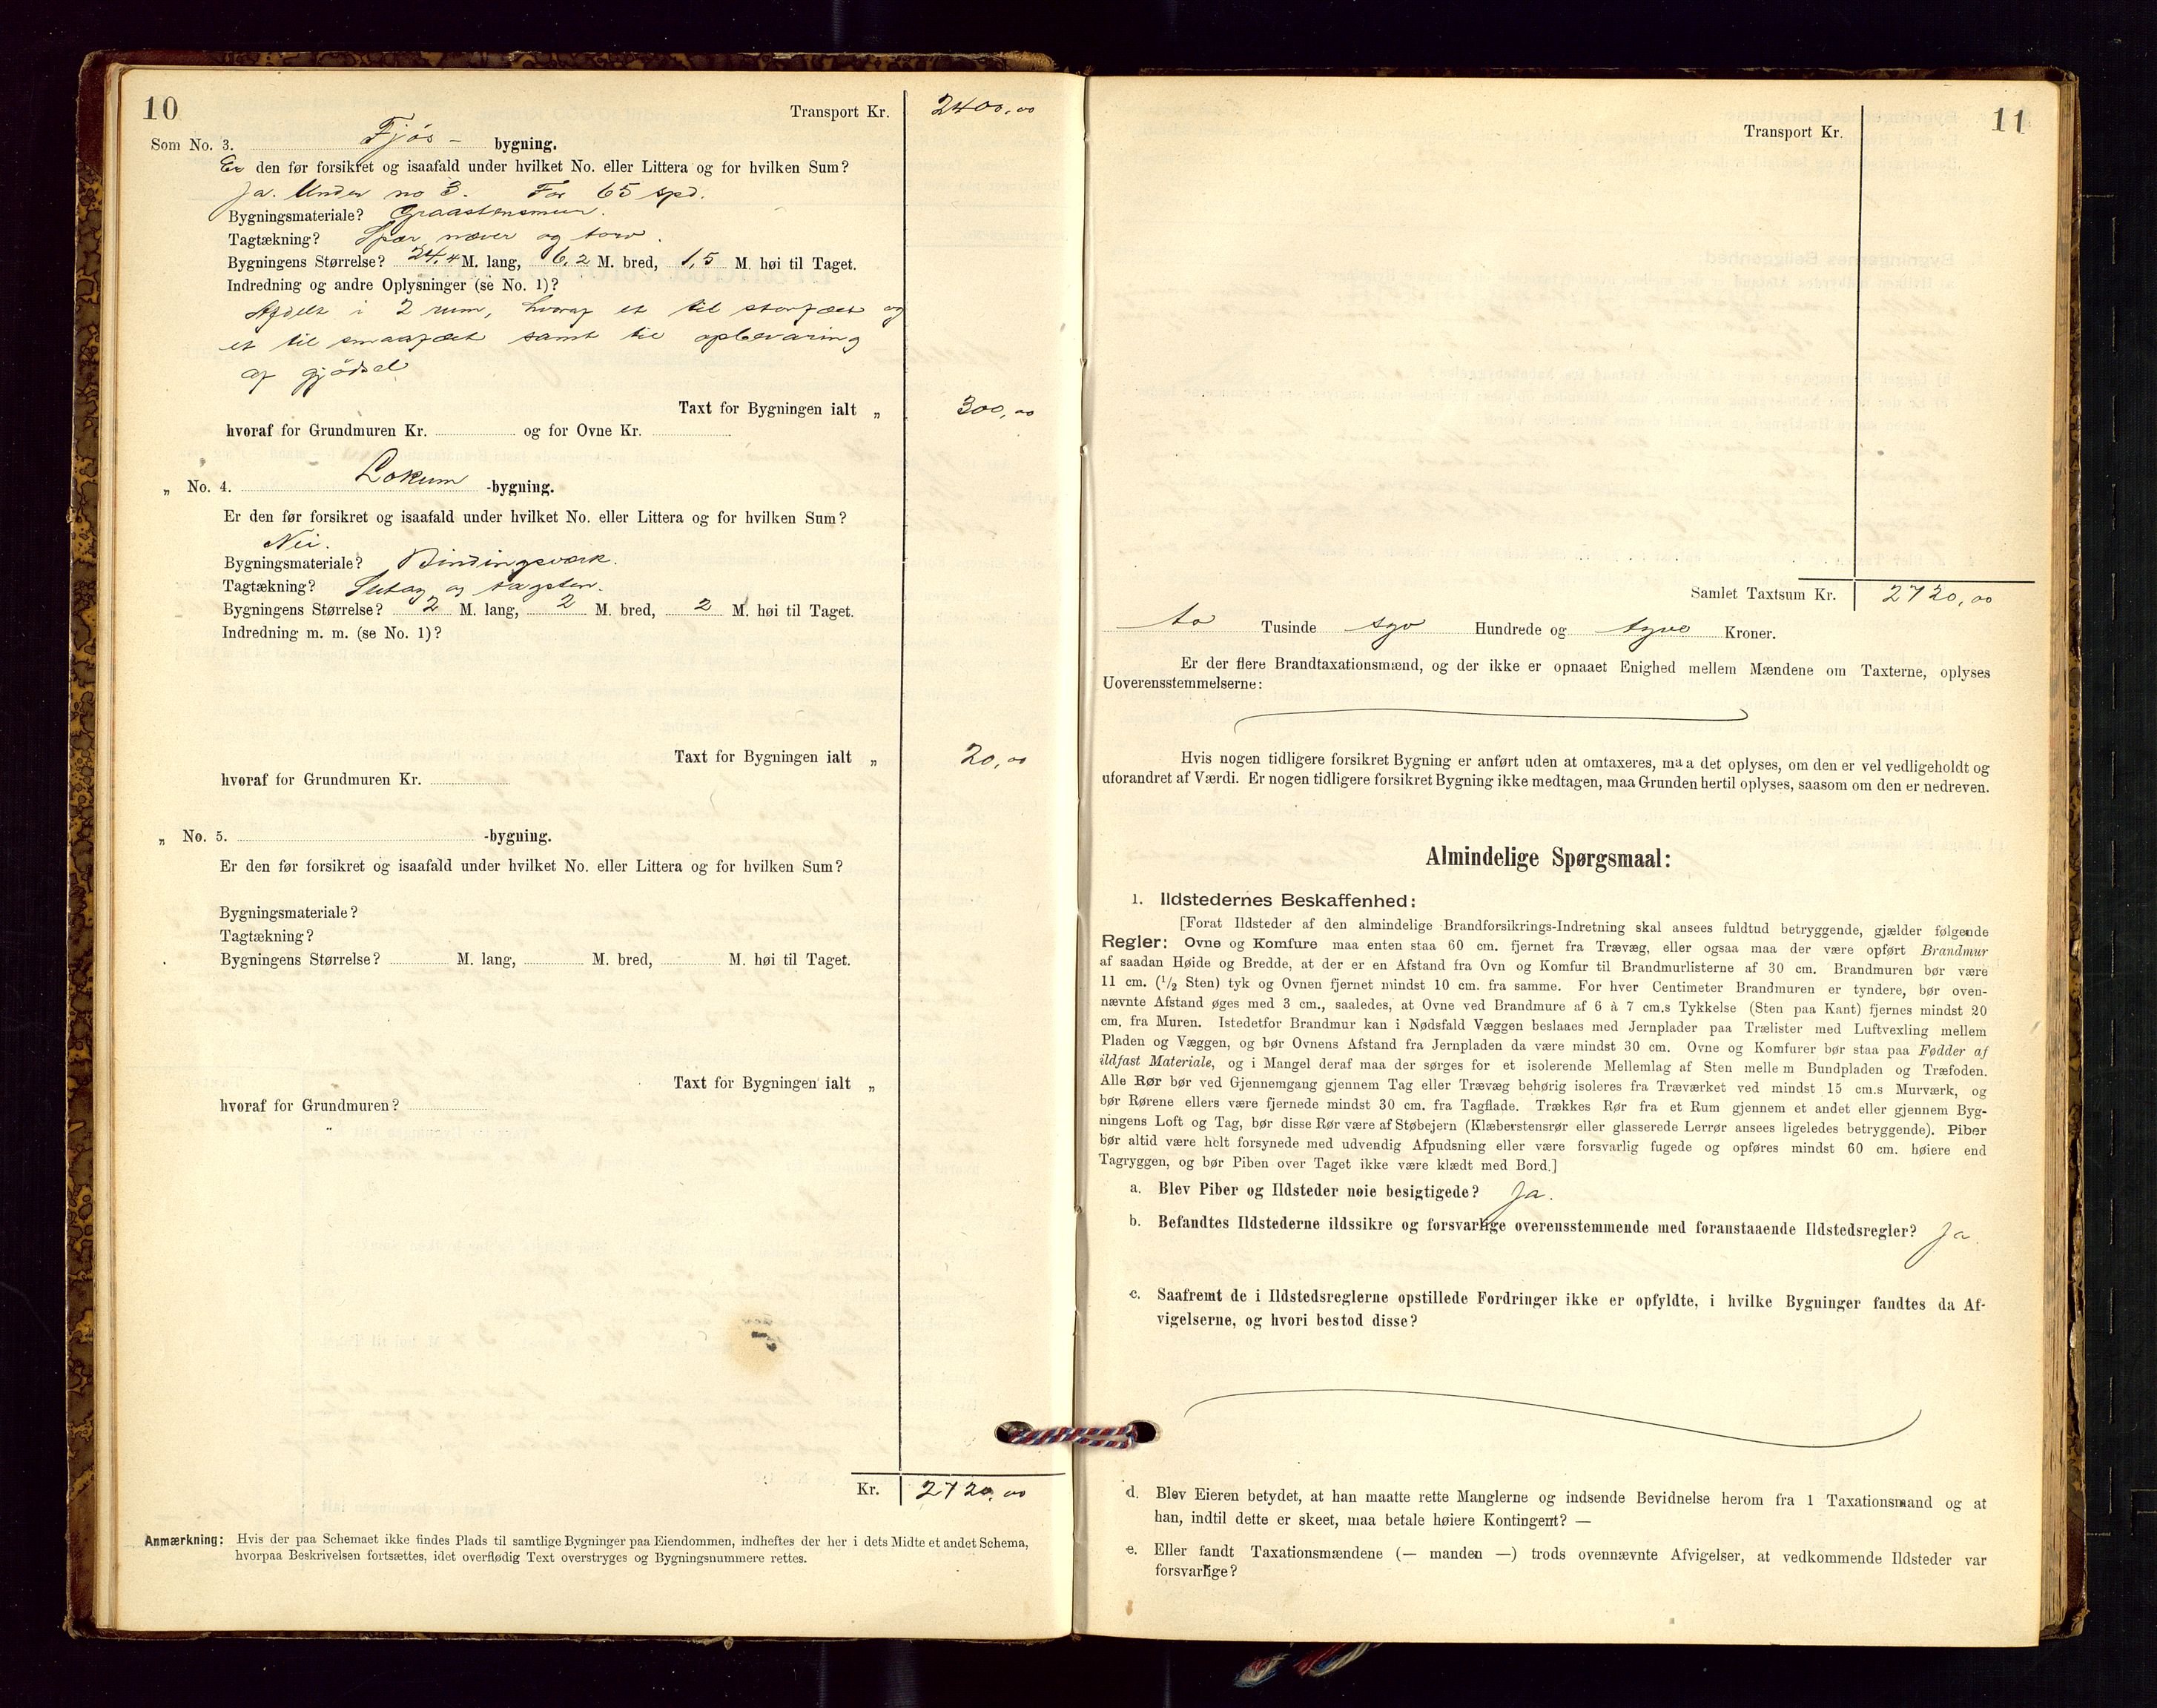 10
Transport Kr. 2400,00
Som No. 3. Fjös- bygning.
Er den før forsikret og isaafald under hvilket No. eller Littera og for hvilken Sum?
Ja. Under no 3. For 65 spd.
Bygningsmateriale? Graastensmur.
Tagtækning? Spær, næver og torv.
Bygningens Størrelse? 24,4 M. lang, 6,2 M. bred, 1,5 M. høi til Taget.
Indredning og andre Oplysninger (se No. 1)?
Afdelt i 2 rum, hvoraf et til storfæet og
et til smaafæet samt til opbevaring
af gjödsel
Taxt for Bygningen ialt „ 300,00
hvoraf for Grundmuren Kr. og for Ovne Kr.
„ No. 4. Lokum -bygning.
Er den før forsikret og isaafald under hvilket No. eller Littera og for hvilken Sum?
Nei.
Bygningsmateriale? Bindingsværk.
Tagtækning? Sutag og tagsten.
Bygningens Størrelse? 2 M. lang, 2 M. bred, 2 M. høi til Taget.
Indredning m. m. (se No. 1)?
Taxt for Bygningen ialt „ 20,00
hvoraf for Grundmuren Kr.
„ No. 5. -bygning.
Er den før forsikret og isaafald under hvilket No. eller Littera og for hvilken Sum?
Bygningsmateriale?
Tagtækning?
Bygningens Størrelse? M. lang, M. bred, M. høi til Taget.
Taxt for Bygningen ialt „
hvoraf for Grundmuren?
Kr. 2720,00
Anmærkning: Hvis der paa Schemaet ikke findes Plads til samtlige Bygninger paa Eiendommen, indheftes der her i dets Midte et andet Schema,
hvorpaa Beskrivelsen fortsættes, idet overflødig Text overstryges og Bygningsnummere rettes.
11
Transport Kr.
Samlet Taxtsum Kr. 2720,00
to Tusinde syv Hundrede og tyve Kroner.
Er der flere Brandtaxationsmænd, og der ikke er opnaaet Enighed mellem Mændene om Taxterne, oplyses
Uoverensstemmelserne:
Hvis nogen tidligere forsikret Bygning er anført uden at omtaxeres, maa det oplyses, om den er vel vedligeholdt og
uforandret af Værdi. Er nogen tidligere forsikret Bygning ikke medtagen, maa Grunden hertil oplyses, saasom om den er nedreven.
Almindelige Spørgsmaal:
1. Ildstedernes Beskaffenhed:
[Forat Ildsteder af den almindelige Brandforsikrings-Indretning skal ansees fuldtud betryggende, gjælder følgende
Regler: Ovne og Komfure maa enten staa 60 cm. fjernet fra Trævæg, eller ogsaa maa der være opført Brandmur
af saadan Høide og Bredde, at der er en Afstand fra Ovn og Komfur til Brandmurlisterne af 30 cm. Brandmuren bør være
11 cm. (1/2 Sten) tyk og Ovnen fjernet mindst 10 cm. fra samme. For hver Centimeter Brandmuren er tyndere, bør oven-
nævnte Afstand øges med 3 cm., saaledes, at Ovne ved Brandmure af 6 à 7 cm.s Tykkelse (Sten paa Kant) fjernes mindst 20
cm. fra Muren. Istedetfor Brandmur kan i Nødsfald Væggen beslaaes med Jernplader paa Trælister med Luftvexling mellem
Pladen og Væggen, og bør Ovnens Afstand fra Jernpladen da være mindst 30 cm. Ovne og Komfurer bør staa paa Fødder af
ildfast Materiale, og i Mangel deraf maa der sørges for et isolerende Mellemlag af Sten mellem Bundpladen og Træfoden.
Alle Rør bør ved Gjennemgang gjennem Tag eller Trævæg behørig isoleres fra Træværket ved mindst 15 cm.s Murværk, og
bør Rørene ellers være fjernede mindst 30 cm. fra Tagflade. Trækkes Rør fra et Rum gjennem et andet eller gjennem Byg-
ningens Loft og Tag, bør disse Rør være af Støbejern (Klæberstensrør eller glasserede Lerrør ansees ligeledes betryggende). Piber
bør altid være helt forsynede med udvendig Afpudsning eller være forsvarlig fugede og opføres mindst 60 cm. høiere end
Tagryggen, og bør Piben over Taget ikke være klædt med Bord.]
a. Blev Piber og Ildsteder nøie besigtigede? Ja.
b. Befandtes Ildstederne ildssikre og forsvarlige overensstemmende med foranstaaende Ildstedsregler? Ja.
c. Saafremt de i Ildstedsreglerne opstillede Fordringer ikke er opfyldte, i hvilke Bygninger fandtes da Af-
vigelserne, og hvori bestod disse?
d. Blev Eieren betydet, at han maatte rette Manglerne og indsende Bevidnelse herom fra 1 Taxationsmand og at
han, indtil dette er skeet, maa betale høiere Kontingent? —
e. Eller fandt Taxationsmændene (— manden —) trods ovennævnte Afvigelser, at vedkommende Ildsteder var
forsvarlige?